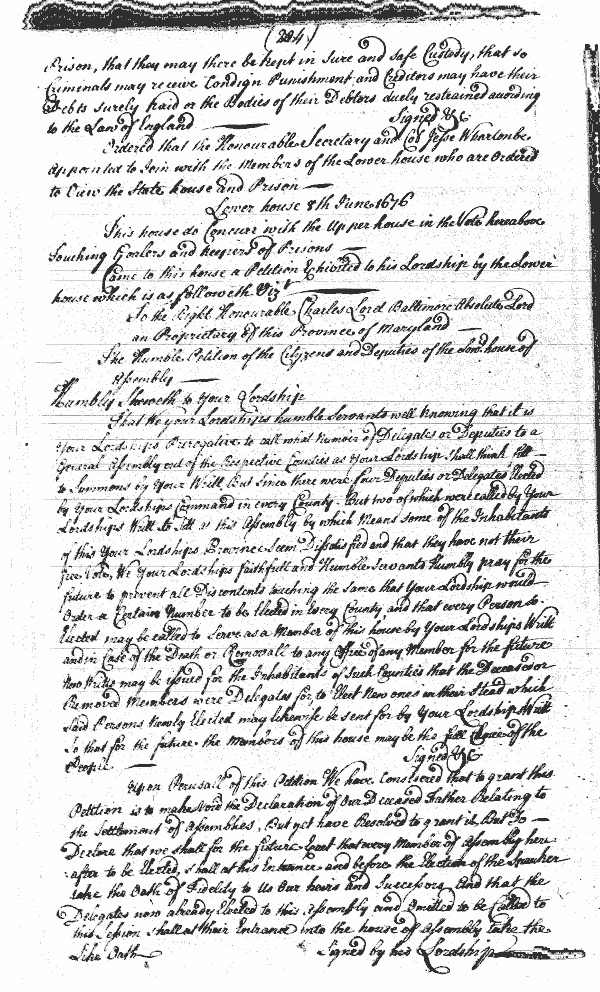 (284)
Prison, that they may there be kept in Sure and safe Custody, that so
Criminals may receive Condign Punishment and Creditors may have their
Debts surely paid or the Bodies of their Debtors duely restrained according
to the Law of England Signed &c
Ordered that the Honourable Secretary and Col Jesse Wharton be
appointed to Join with the Members of the Lower house who are Ordered
to View the State house and Prison
Lower house 8th June 1676
This house do Concur with the Upper house in the Vote hereabove
touching Goalers and keepers of Prisons
Came to this house a Petition Exhibited to his Lordship by the Lower
house which is as followeth Vizt
To the Right Honourable Charles Lord Baltimore Absolute Lord
an Proprietary of this Province of Maryland
The Humble Petition of the Cityzens and Deputies of the Low. house of
Assembly
Humbly Sheweth to Your Lordship
That We your Lordships humble Servants well knowing that it is
Your Lordships Prerogative to call what Number of Delegates or Deputies to a
General Assembly out of the Respective Counties as Your Lordship Shall think fitt
to Summons by Your Writt But Since there were four Deputies or Delegates Elected
by Your Lordships Command in every County But two of which were called by Your
Lordships Writt to Sitt as this Assembly by which Means some of the Inhabitants
of this Your Lordships Province Seem Dissatisfied and that they have not their
free Vote, We Your Lordships faithfull and Humble Servants Humbly pray for the
future to prevent all Discontents touching the same that Your Lordship would
Order a Certain Number to be Elected in Every County and that every Person so
Elected may be called to Serve as a Member of this house by Your Lordships Writt
and in Case of the Death or Removall to any Office of any Member for the future
New Writts may be Issued for the Inhabitants of Such Counties that the Deceased or
Removed Members were Delegates for to Elect New ones in their Stead which
said Persons newly Elected may likewise be sent for by Your Lordships Writt
So that for the future the Members of this house may be the full Choice of the
People Signed &c
Upon Perusall of this Petition We have Considered that to grant this
Petition is to make Void the Declaration of Our Deceased Father Relating to
the Settlement of Assemblies, But yet have Resolved to grant it, But To
Declare that we shall for the future Expect that every Member of Assembly here
after to be Elected, shall at his Entrance and before the Election of the Speaker
take the Oath of Fidelity to Us Our heirs and Successors And that the
Delegates now already Elected to this Assembly and Omitted to be Called to
this Session shall at their Entrance into the house of Assembly take the
Like Oath Signed by his Lordship